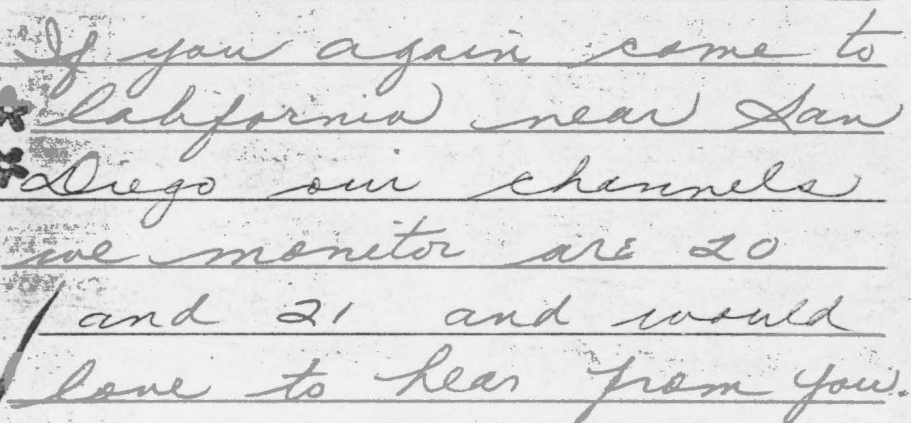 If you again come to
California near San
Diego our channels
we monitor are 20
and 21 and would
love to hear from you.